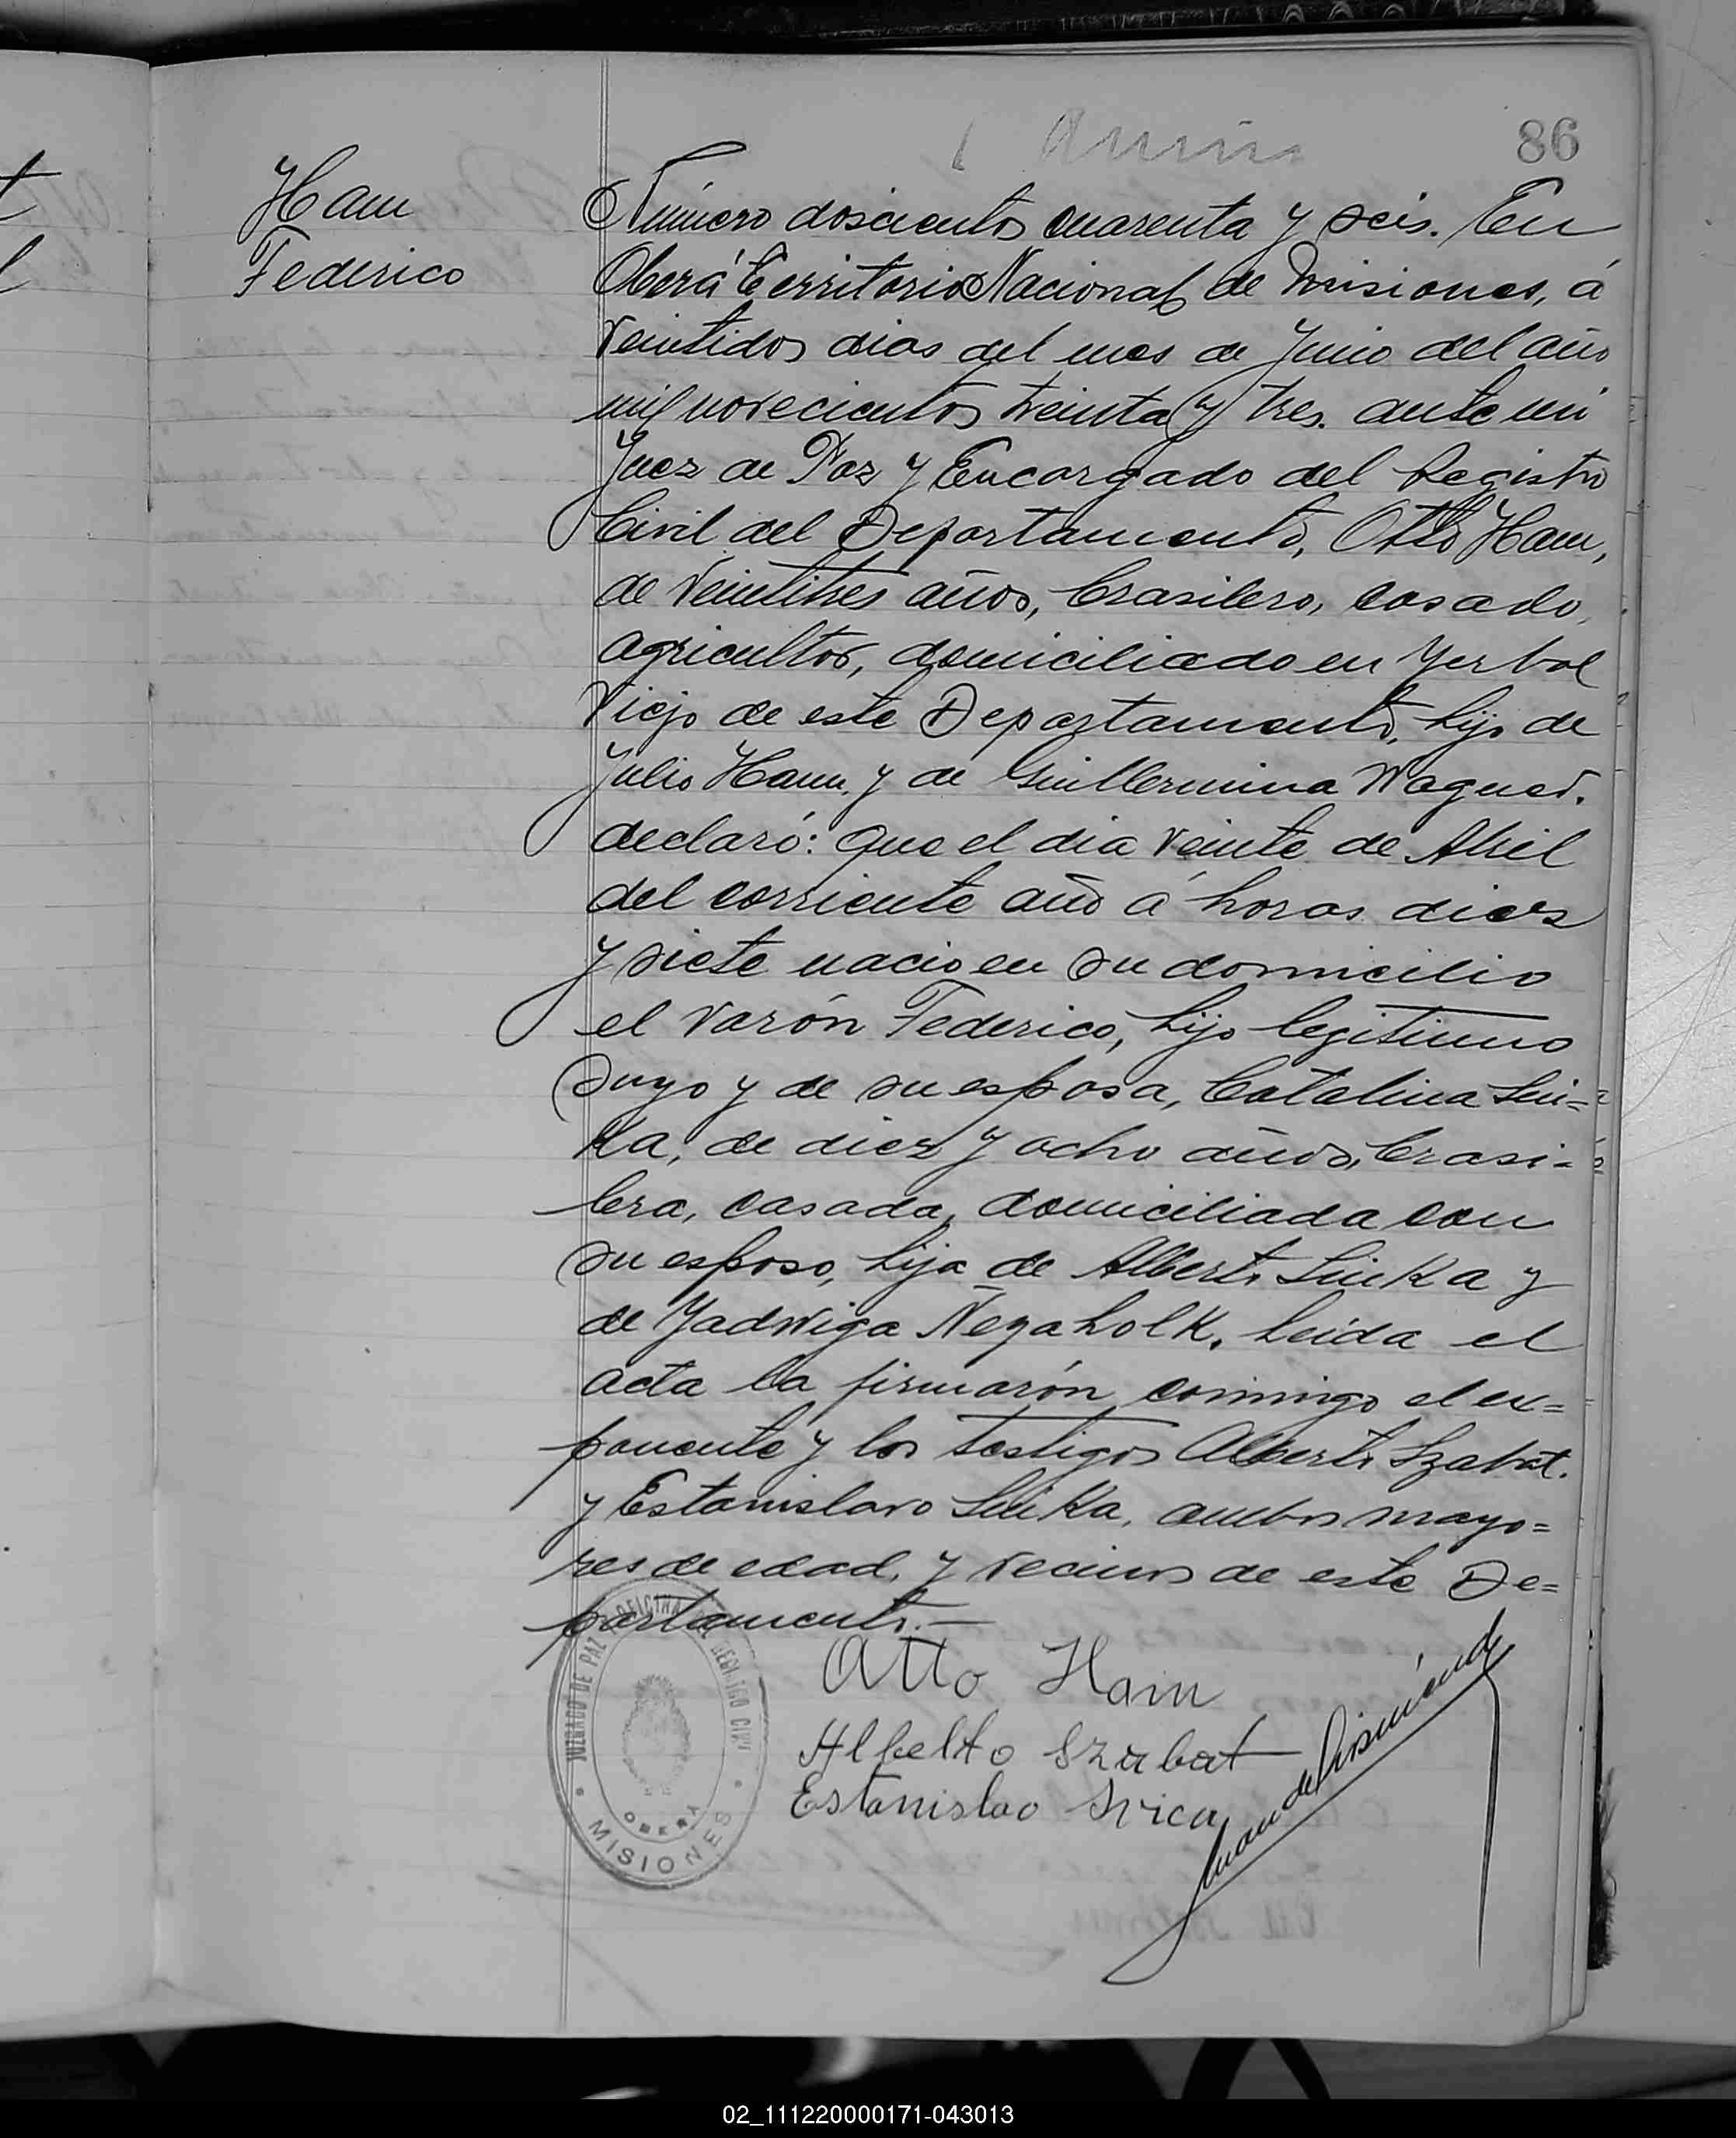 86
Ham
Federico
Número doscientos cuarenta y seis. En
Oberá Territorio Nacional de Misiones, á
veintidos dias del mes de Junio del año
mil novecientos treinta y tres. ante mi
Juez de Paz y Encargado del Registro
Civil del Departamento, Otto Ham,
de veintitres años, brasilero, casado,
agricultor, domiciliado en Yerbal
Viejo de este Departamento, hijo de
Julio Ham y de Guillermina Wagner.
declaró: que el dia veinte de Abril
del corriente año á horas diez
y siete nacio en su domicilio
el varón Federico, hijo legitimo
suyo y de su esposa, Catalina Sui=
Ka, de diez y ocho años, brasi=
lera, casada, domiciliada con
su esposo, hija de Alberto SuiKa y
de Yadwiga NezaholK. Leida el
acta la firmarón conmigo el ex=
ponente y los testigos Alberto Szabat.
y Estanislavo SuiKa, ambos mayo=
res de edad, y vecinos de este De=
partamento.—
Otto Ham
Alberto Szabat
Estanislao
Juan de
JUZGADO DE PAZ OFICINA DEL REGISTRO CIVIL
OBERA
MISIONES
02_111220000171-043013